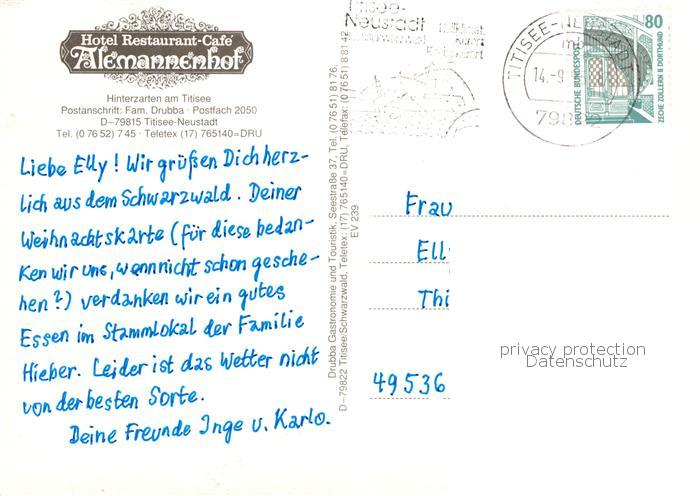 Hotel Restaurant-Café
Alemannenhof
Hinterzarten am Titisee
Postanschrift: Fam. Drubba · Postfach 2050
D–79815 Titisee-Neustadt
Tel. (0 76 52) 7 45 · Teletex (17) 765140=DRU
Liebe Elly! Wir grüßen Dich herz-
lich aus dem Schwarzwald. Deiner
Weihnachtskarte (für diese bedan-
ken wir uns, wenn nicht schon gesche-
hen?) verdanken wir ein gutes
Essen im Stammlokal der Familie
Hieber. Leider ist das Wetter nicht
von der besten Sorte.
Deine Freunde Inge u. Karlo.
Drubba Gastronomie und Touristik, Seestraße 37, Tel. (0 76 51) 81 76,
D–79822 Titisee/Schwarzwald, Teletex: (17) 765140=DRU, Telefax: (0 76 51) 8 81 42
EV 239
Titisee-
Neustadt
Heilklimat.
Kurort
Kneippkurort
TITISEE-NEUSTADT
14.-9
79822
80
DEUTSCHE BUNDESPOST
ZECHE ZOLLERN II DORTMUND
Frau
Ell
Thi
49536
privacy protection
Datenschutz